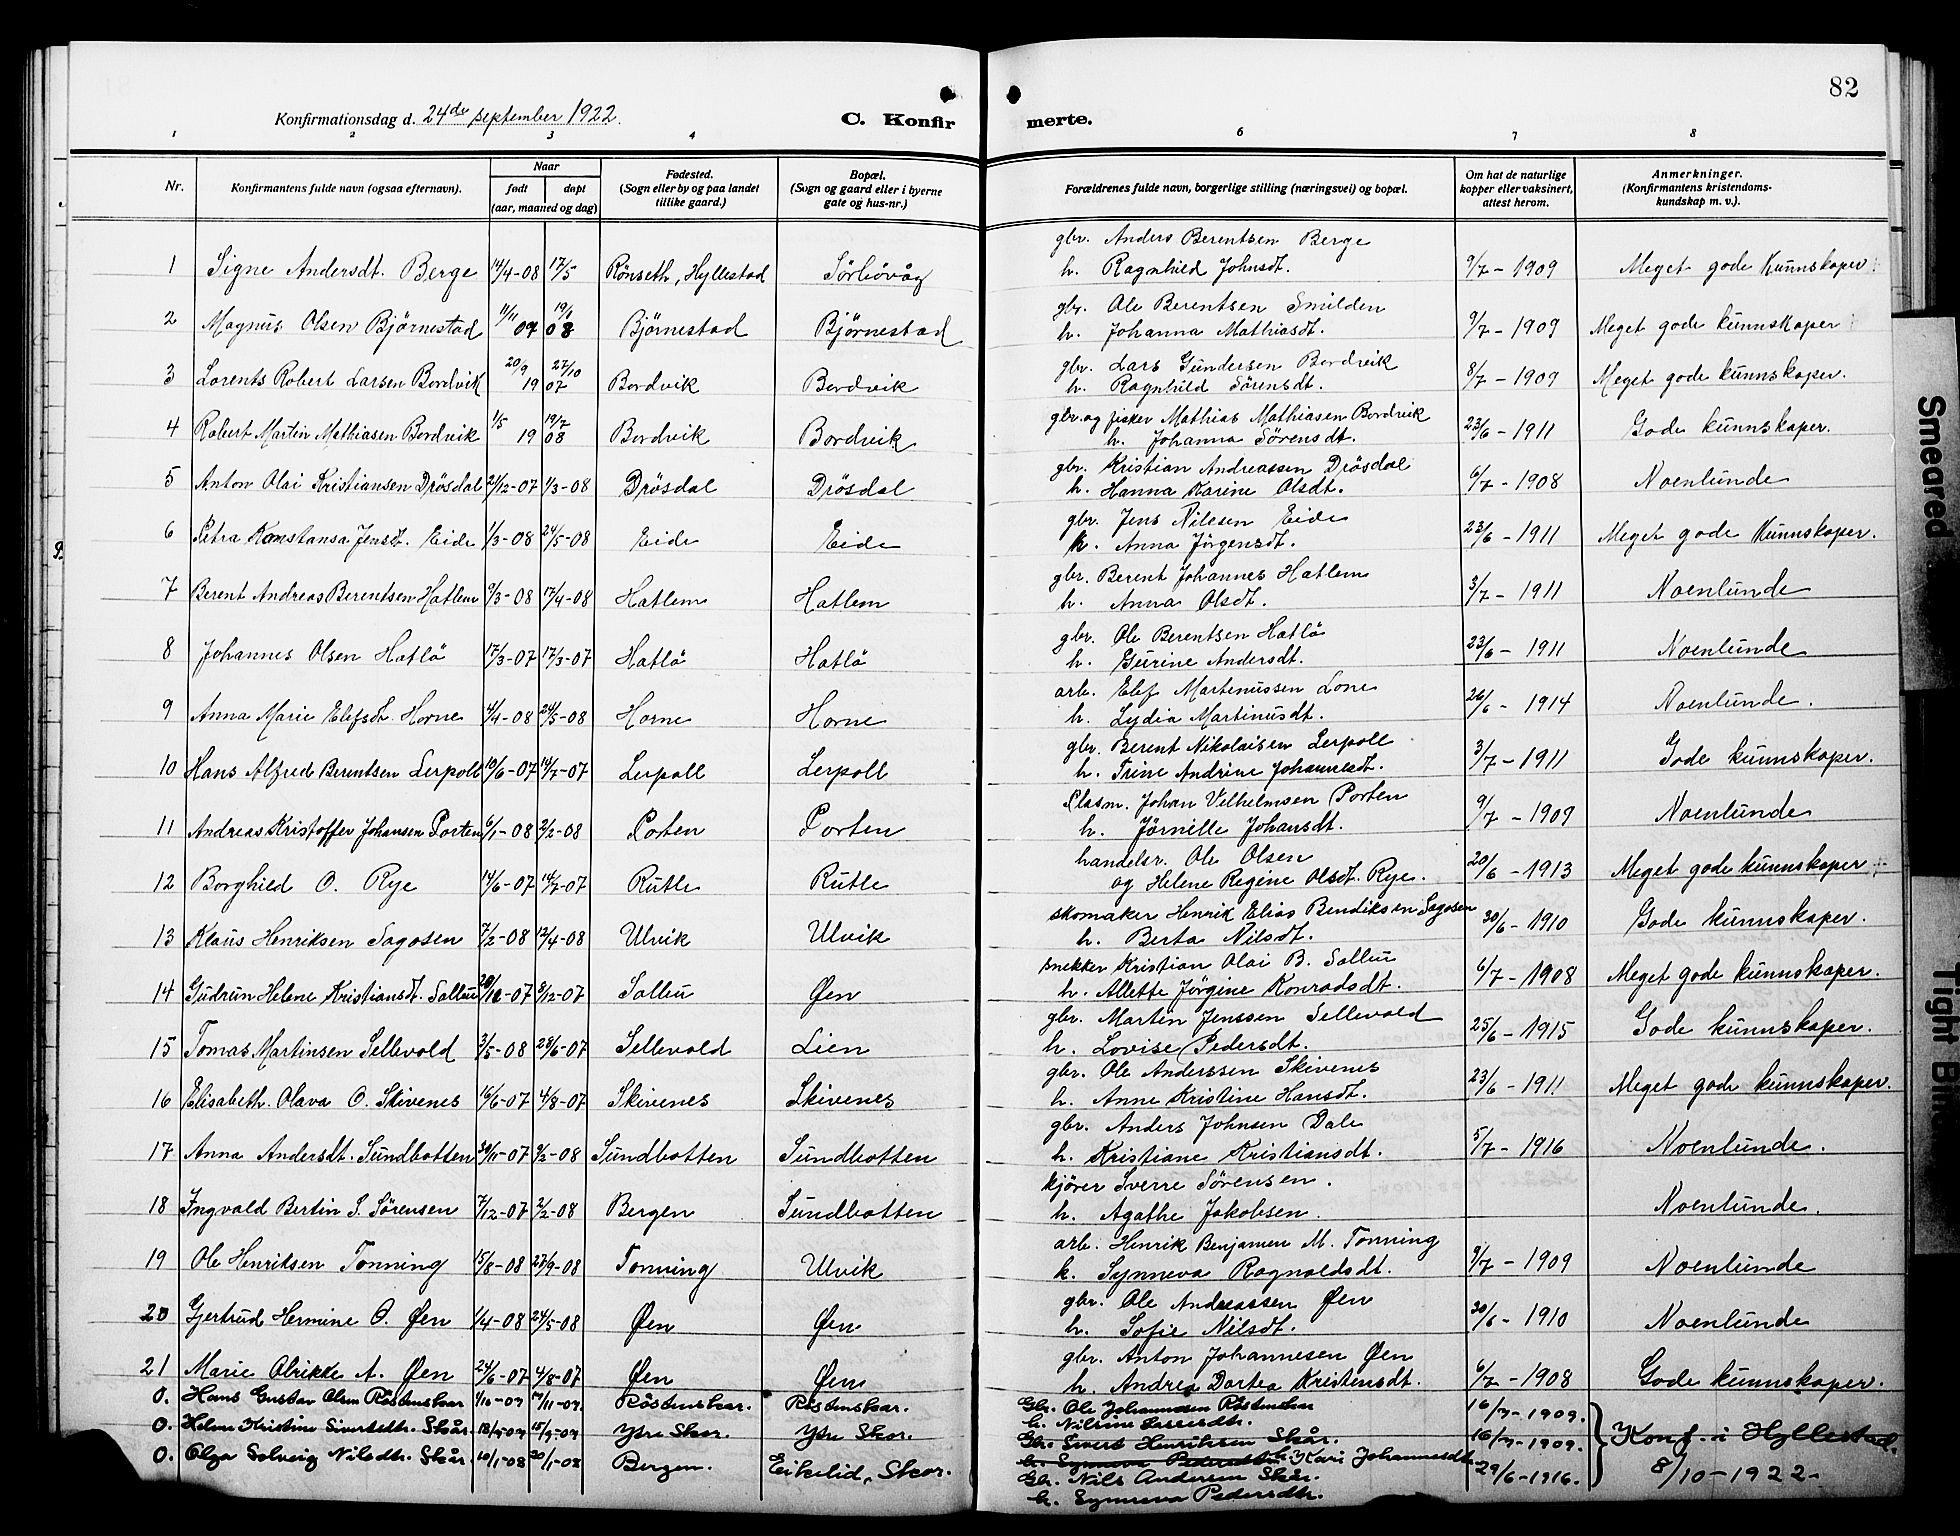 82
Konfirmationsdag d. 24de september 1922.
C. Konfirmerte.
1 2 3 4 6 7 8
Nr.
Konfirmantens fulde navn (ogsaa efternavn).
Naar
født døpt
(aar, maaned og dag)
Fødested.
(Sogn eller by og paa landet
tillike gaard.)
Bopæl.
(Sogn og gaard eller i byerne
gate og hus-nr.)
Forældrenes fulde navn, borgerlige stilling (næringsvei) og bopæl.
Om hat de naturlige
kopper eller vaksinert,
attest herom.
Anmerkninger.
(Konfirmantens kristendoms-
kundskap m. v.).
gbr. Anders Berentsen Berge
1 Signe Andersdt. Berge 14/4-08 17/5 Rönseth, Hyllestad Sörbövåg h. Ragnhild Johnsdt. 9/7 - 1909 Meget gode kunnskaper
gbr. Ole Berentsen Smilden
2 Magnus Olsen Björnestad 11/11 07 19/1 08 Björnestad Björnestad h. Johanna Mathiasdt. 9/7 - 1909 Meget gode kunnskaper
gbr. Lars Gundersen Bordvik
3 Lorents Robert Larsen Bordvik 20/9 27/10 19 07 Bordvik Bordvik h. Ragnhild Sörensdt. 8/7 - 1909 Meget gode kunnskaper.
gbr. og fisker Mathias Mathiasen Bordvik
4 Robert Martin Mathiasen Bordvik 1/5 19/7 19 08 Bordvik Bordvik h. Johanna Sörensdt. 23/6 - 1911 Gode kunnskaper.
gbr. Kristian Andreassen Drösdal
5 Anton Olai Kristiansen Drösdal 21/12-07 1/3-08 Drösdal Drösdal h. Hanna Karine Olsdt. 6/7 - 1908 Noenlunde
gbr. Jens Nilsen Eide
6 Petra Konstansa Jensdt. Eide 1/3-08 24/5-08 Eide Eide h. Anna Jörgensdt. 23/6 - 1911 Meget gode kunnskaper.
gbr. Berent Johannes Hatlem
7 Berent Andreas Berentsen Hatlem 9/3-08 17/4-08 Hatlem Hatlem h. Anna Olsdt. 3/7 - 1911 Noenlunde
gbr. Ole Berentsen Hatlö
8 Johannes Olsen Hatlö 17/3-07 17/3-07 Hatlö Hatlö h. Gurine Andersdt. 23/6 - 1911 Noenlunde
arb. Elef Martenussen Lone
9 Anna Marie Elefsdt. Horne 4/4-08 24/5-08 Horne Horne h. Lydia Martinusdt. 26/6 - 1914 Noenlunde.
gbr. Berent Nikolaisen Lerpoll
10 Hans Alfred Berentsen Lerpoll 10/6-07 14/7-07 Lerpoll Lerpoll h. Trine Andrine Johannesdt. 3/7 - 1911 Gode kunnskaper.
Plasm. Johan Velhelmsen Porten
11 Andreas Kristoffer Johansen Porten 6/1-08 2/2-08 Porten Porten h. Jörnille Johansdt. 9/7 - 1909 Noenlunde
handelsr. Ole Olsen
12 Borghild O. Rye 14/6-07 14/7-07 Rutle Rutle og Helene Regine Olsdt. Rye. 20/6 - 1913 Meget gode kunnskaper
skomaker Henrik Elias Bendiksen Sagosen
13 Klaus Henriksen Sagosen 7/2-08 12/4-08 Ulvik Ulvik h. Berta Nilsdt. 30/6 - 1910 Gode kunnskaper.
snekker Kristian Olai B. Solleu
14 Gudrun Helene Kristiansdt. Solleu 8/12-07 Solleu Øen h. Allette Jörgine Konradsdt. 6/7 - 1908 Meget gode kunnskaper.
gbr. Martin Jenssen Sellevold
15 Tomas Martinsen Sellevold 3/5-08 28/6-07 Sellevold Lien h. Lovise Pedersdt. 25/6 - 1915 Gode kunnskaper.
gbr. Ole Anderssen Skivenes
16 Elisabeth Olava O. Skivenes 16/6-07 4/8-07 Skivenes Skivenes h. Anne Kristine Hansdt. 23/6 - 1911 Meget gode kunnskaper.
gbr. Anders Johnsen Dale
17 Anna Andersdt. Sundbotten 30/11-07 9/2-08 Sundbotten Sundbotten h. Kristiane Kristiansdt. 5/7 - 1916 Noenlunde.
kjörer Sverre Sörensen.
18 Ingvald Bertin S. Sörensen 7/12-07 2/2-08 Bergen Sundbotten h. Agathe Jakobsen. Noenlunde.
arb. Henrik Benjamen M. Tonning
19 Ole Henriksen Tonning 15/8-08 27/9-08 Tonning Ulvik h. Synneva Ragnoldsdt. 9/7 - 1909 Noenlunde
gbr. Ole Andreassen Øen
20 Gjertrud Hermine O. Øen 1/4-08 24/5-08 Øen Øen h. Sofie Nilsdt. 30/6 - 1910 Noenlunde
gbr. Anton Johannesen Øen
21 Marie Olrikke A. Øen 24/6-07 4/8-07 Øen Øen h. Andrea Dortea Kristensdt. 6/7 - 1908 Gode kunnskaper.
0. Hans Gustav Olsen Röstenskar 1/10-07 17/11-07. Röstenskar. Röstenskar. Gbr. Ole Johannesen Röstenskar 16/7-1909.
h. Nilsine Larsdtr.
0. Helene Kristine Sivertsdtr. Skår. 15/9-07 Ytre Skor. Ytre Skor. Gbr. Sivert Henriksen Skår. 16/7-1909. Konf. i Hyllestad.
h. Synneva Pedersdtr. Kari Johannesdtr
0. Olga Solveig Nilsdtr. Skår. 10/1-08 20/1-08 Bergen. Eikelid, Skor. Gbr. Nils Andersen Skår. 29/6-1916. 8/10-1922-
h. Synneva Pedersdtr.
Smeared
Tight Bin